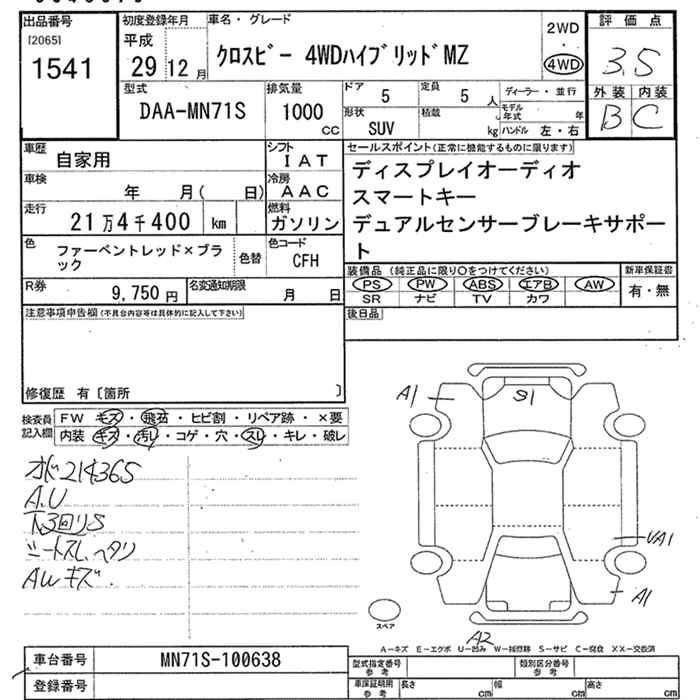 出品番号
[2065]
1541
初度登録年月
平成
29 12 月
車名・グレード
クロスビー 4WDハイブリッドMZ
2WD
・
4WD
評価点
3.5
外装 内装
B C
型式
DAA-MN71S
排気量
1000
cc
ドア
5
定員
5 人
形状
SUV
積載
kg
ディーラー・並行
モデル年式 年
ハンドル 左・右
車歴
自家用
シフト
IAT
車検
年 月( 日)
冷房
AAC
走行
21万4千400 km
燃料
ガソリン
色
ファーベントレッド×ブラック
色替
色コード
CFH
R券
9,750 円
名変通知期限
月 日
セールスポイント(正常に機能するものに限ります)
ディスプレイオーディオ
スマートキー
デュアルセンサーブレーキサポー
ト
装備品(純正品に限り○をつけてください)
PS PW ABS エアB AW
SR ナビ TV カワ
新車保証書
有・無
後日品
注意事項申告欄(不具合内容等は具体的に記入して下さい)
修復歴 有〔箇所 〕
検査員
記入欄
FW キズ・飛石・ヒビ割・リペア跡・×要
内装 キズ・汚レ・コゲ・穴・スレ・キレ・破レ
A.U
シートスレ ヘタリ
AWキズ
A1
S1
A1
A2
スペア
A−キズ E−エクボ U−凹み W−補修跡 S−サビ C−腐食 XX−交換済
車台番号
MN71S-100638
登録番号
型式指定番号
参考
類別区分番号
参考
車保証明用
参考
長さ cm
幅 cm
高さ cm